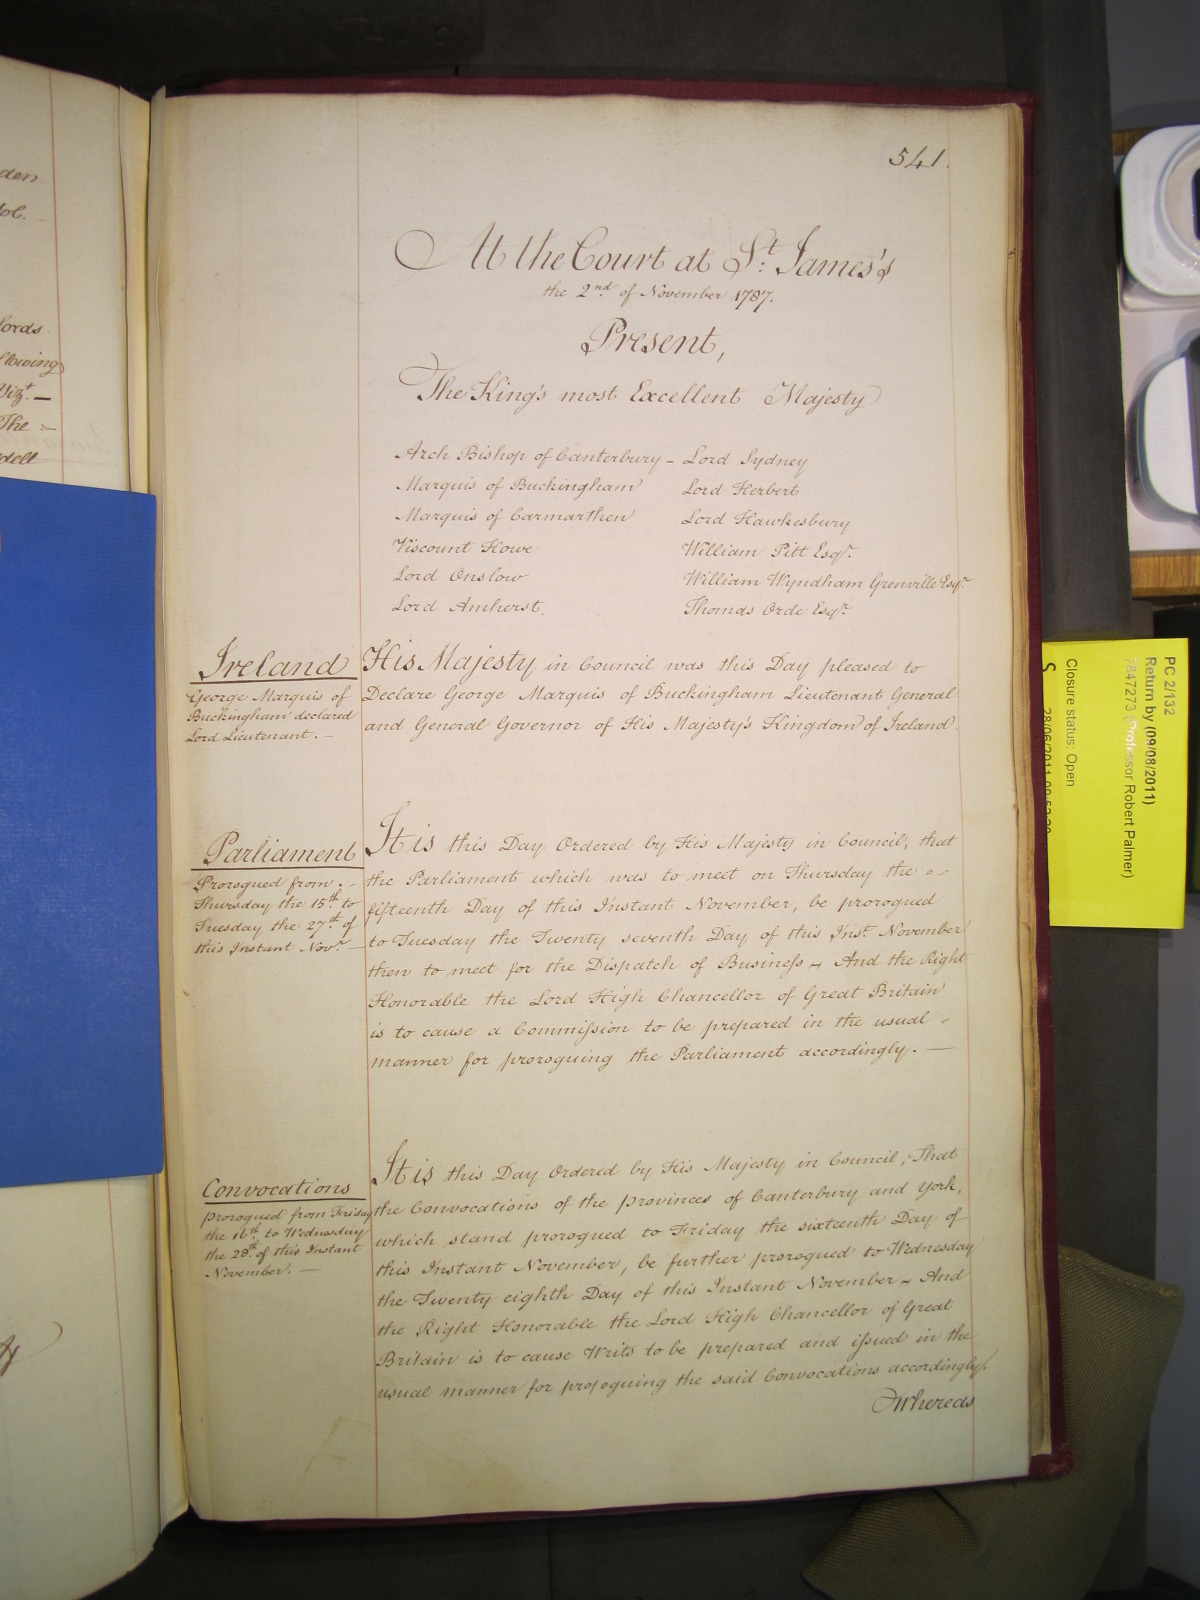 den
lords
llowing
Viz.t —
The =
dell
541.
At the Court at S.t James's
the 2.nd of November 1787.
Present,
The King's most Excellent Majesty
Arch Bishop of Canterbury - Lord Sydney
Marquis of Buckingham Lord Herbert
Marquis of Carmarthen Lord Hawkesbury
Viscount Howe William Pitt Esq.r
Lord Onslow William Wyndham Grenville Esq.r
Lord Amherst. Thomas Orde Esq.r
Ireland
George Marquis of
Buckingham declared
Lord Lieutenant. —
His Majesty in Council was this Day pleased to
Declare George Marquis of Buckingham Lieutenant General
and General Governor of His Majesty's Kingdom of Ireland.
Parliament
Prorogued from. -
Thursday the 15.th to
Tuesday the 27.th of
this Instant Nov.r —
It is this Day Ordered by His Majesty in Council, that
the Parliament which was to meet on Thursday the - -
fifteenth Day of this Instant November, be prorogued
to Tuesday the Twenty seventh Day of this Ins.t November
then to meet for the Dispatch of Business - And the Right
Honorable the Lord High Chancellor of Great Britain
is to cause a Commission to be prepared in the usual -
manner for proroguing the Parliament accordingly. —
Convocations
prorogued from Friday
the 16.th to Wednesday
the 28.th of this Instant
November. —
It is this Day Ordered by His Majesty in Council, That
the Convocations of the provinces of Canterbury and York,
which stand prorogued to Friday the sixteenth Day of
this Instant November, be further prorogued to Wednesday
the Twenty eighth Day of this Instant November - And
the Right Honorable the Lord High Chancellor of Great
Britain is to cause Writs to be prepared and issued in the
usual manner for proroguing the said Convocations accordingly.
Whereas
PC 2/132
Return by (09/08/2011)
7847273 (Professor Robert Palmer)
Closure status: Open
S
28/06/2011